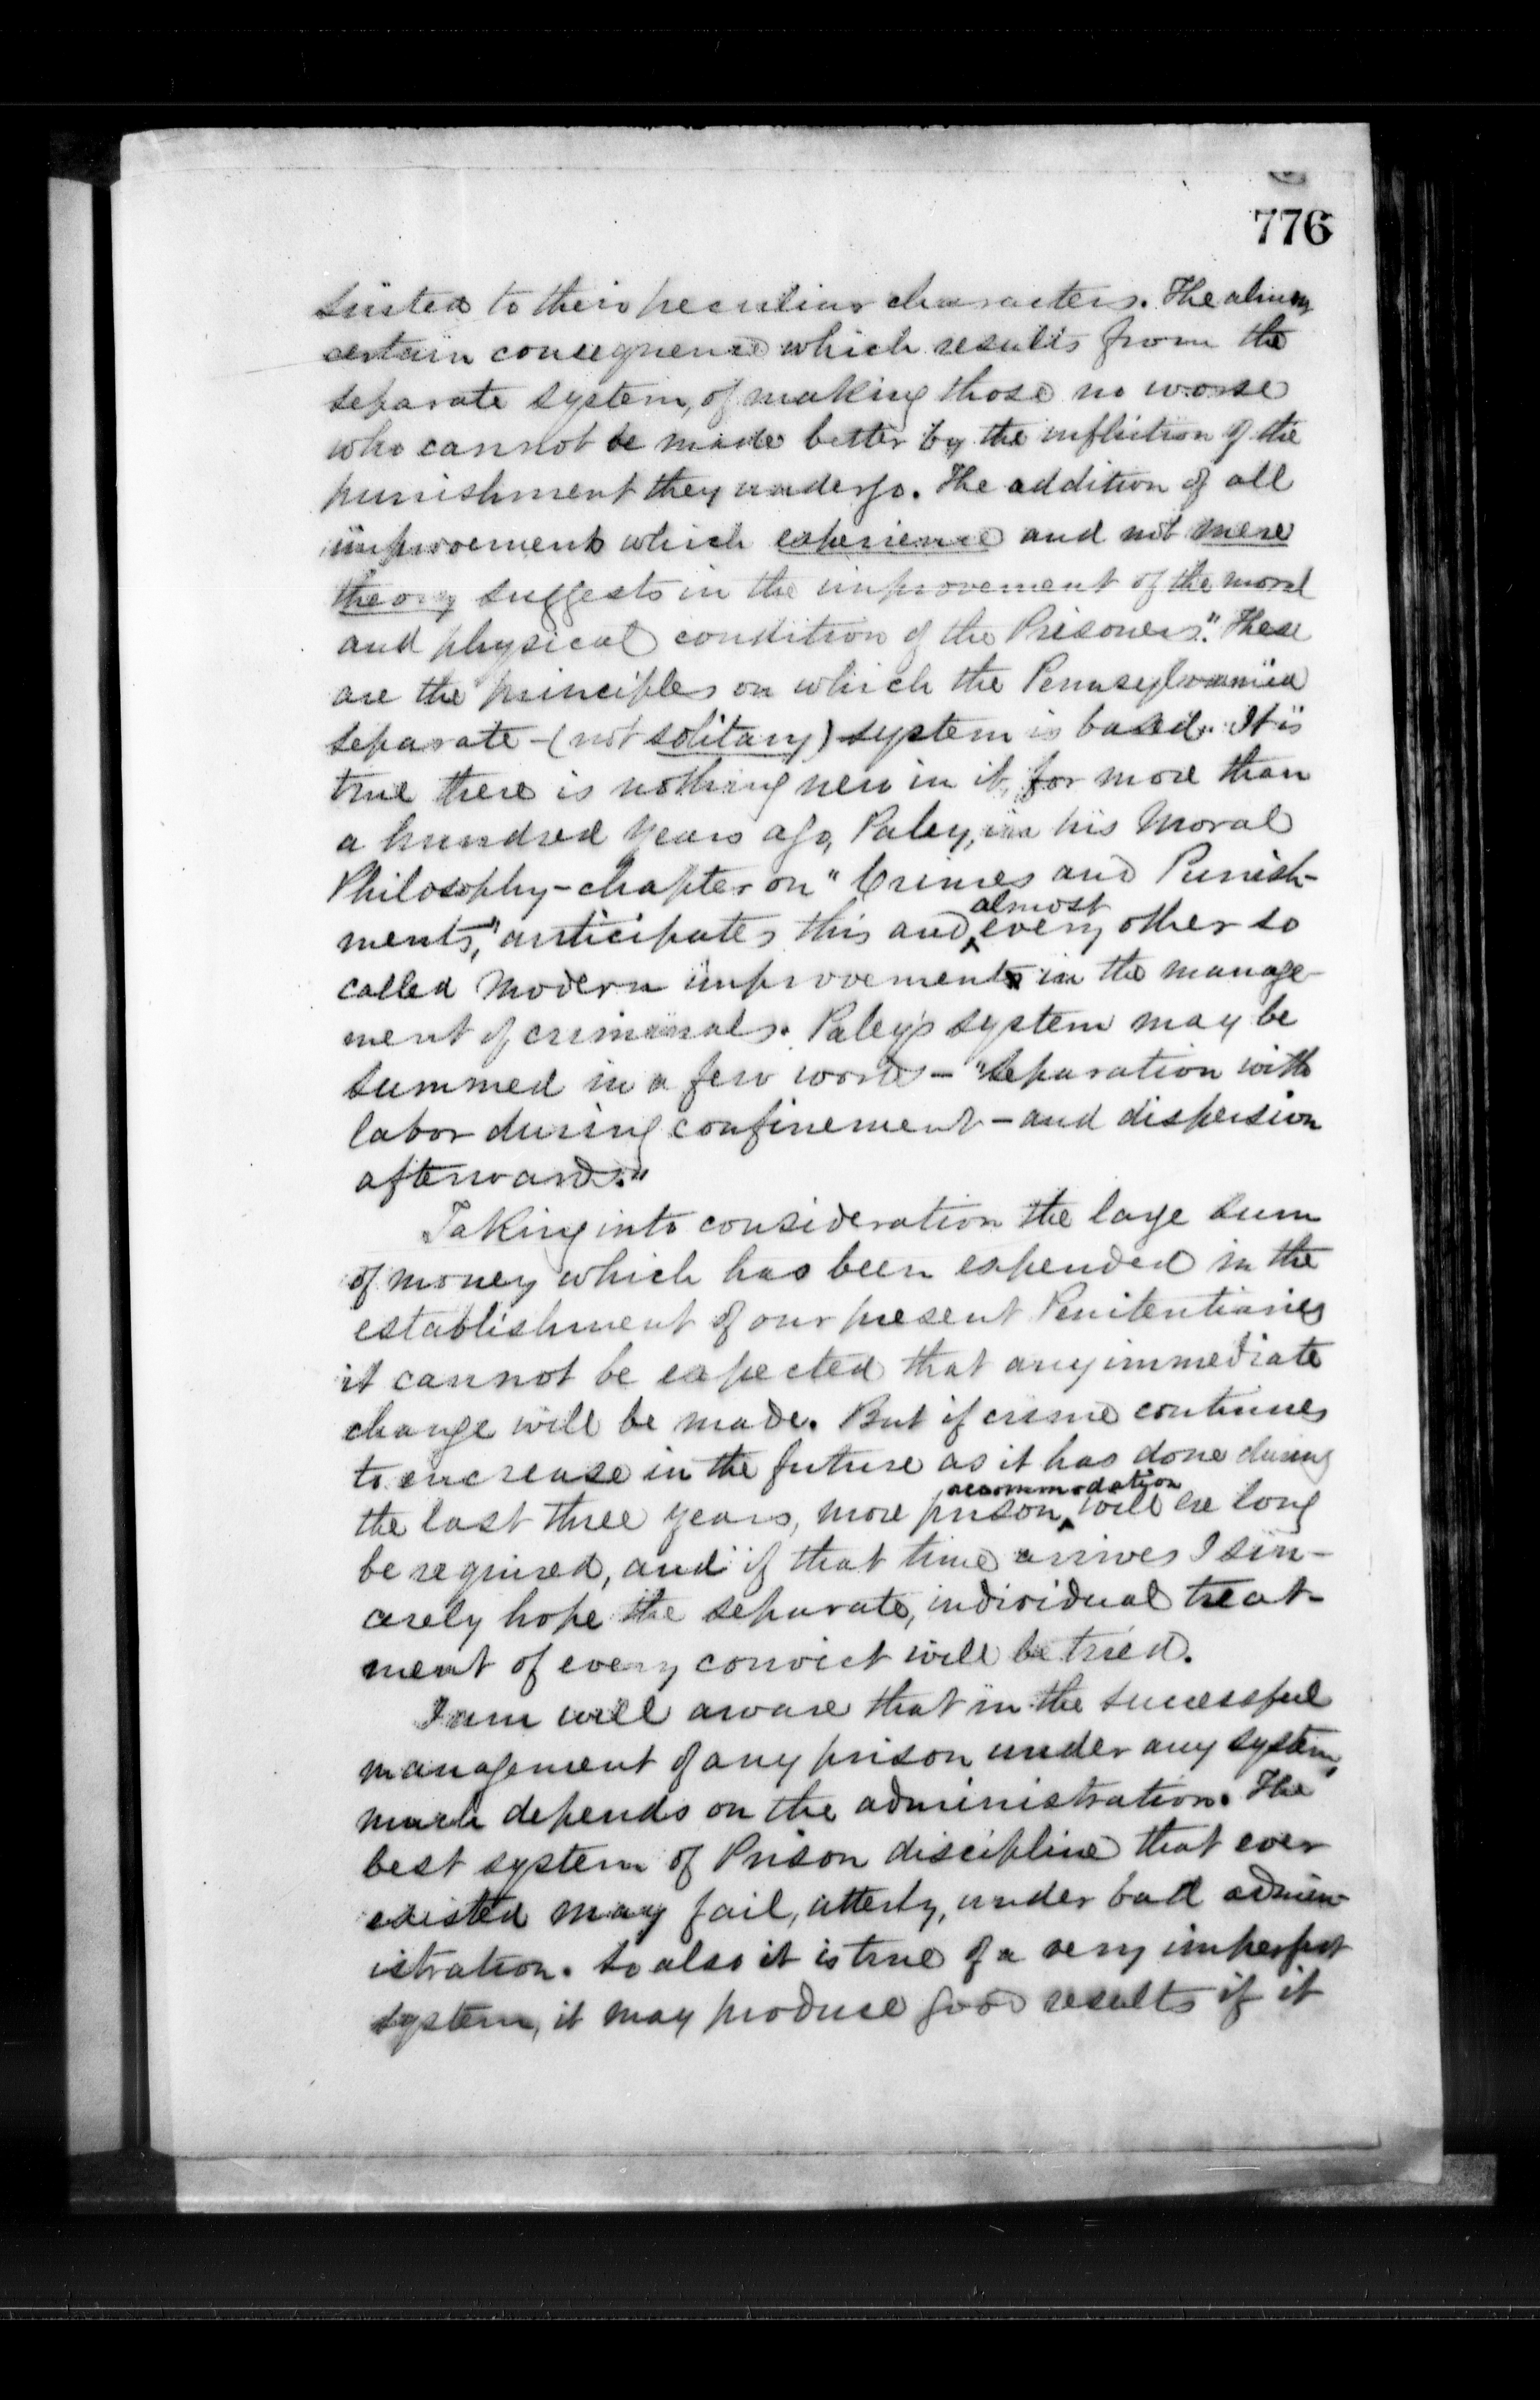 776
suited to their peculiar characters. The almost
certain consequence which results from the
separate system, of making those no worse
who cannot be made better by the infliction of the
punishment they undergo. The addition of all
improvements which experience and not mere
theory suggests in the improvement of the moral
and physical condition of the Prisoners." These
are the principles on which the Pennsylvania
separate - (not solitary) system is based. It is
true there is nothing new in it, for more than
a hundred years ago, Paley, in his Moral
Philosophy - chapter on "Crimes and Punish-
almost
ments," anticipates this and every other so
called modern improvement in the manage-
ment of criminals. Paley's system may be
summed in a few words - "Separation with
labor during confinement - and dispersion
afterwards."
Taking into consideration the large sum
of money which has been expended in the
establishment of our present Penitentiaries
it cannot be expected that any immediate
change will be made. But if crime continues
to encrease in the future as it has done during
accommodation
the last three years, more prison will ere long
be required, and if that time arrives I sin-
cerely hope the separate, individual treat-
ment of every convict will be tried.
I am well aware that in the successful
management of any prison under any system,
much depends on the administration. The
best system of Prison discipline that ever
existed may fail, utterly, under bad admin-
istration. So also it is true of a very imperfect
system, it may produce good results if it